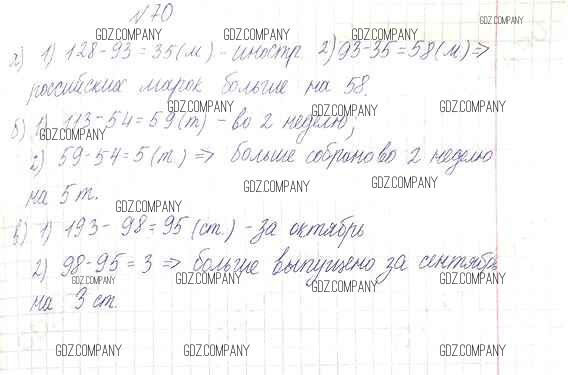 №70 GDZ.COMPANY
GDZ.COMPANY GDZ.COMPANY GDZ.COMPANY
а) 1) 128-93=35(м) - иностр. 2) 93-35=58(м) =>
российских марок больше на 58.
GDZ.COMPANY GDZ.COMPANY GDZ.COMPANY
б) 1) 113-54=59(т) - во 2 неделю,
GDZ.COMPANY
2) 59-54=5(т.) => больше собрано во 2 неделю
GDZ.COMPANY GDZ.COMPANY
на 5 т.
GDZ.COMPANY
в) 1) 193-98=95(ст.) - за октябрь
2) 98-95=3 => больше выпущено за сентябрь
GDZ.COMPANY GDZ.COMPANY GDZ.COMPANY GDZ.COMPANY
на 3 ст.
GDZ.COMPANY GDZ.COMPANY GDZ.COMPANY